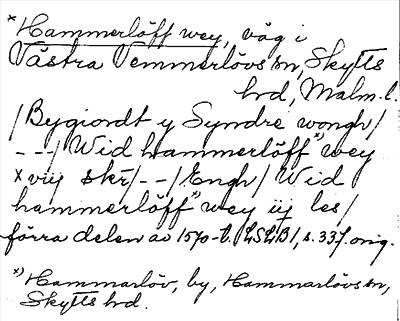 *Hammerlöff wey, väg i
Västra Vemmerlövs sn, Skytts
hd, Malm. l.
/Bygiordt y Syndre wongh/
---/ Wid hammerlöff*) wey
x viij skr/--/Engh/ Wid
hammerlöff*) wey iij les/
förra delen av 1570-t. LSLB1, s. 337. orig.
*) Hammarlöv, by, Hammarlövs sn,
Skytts hd.